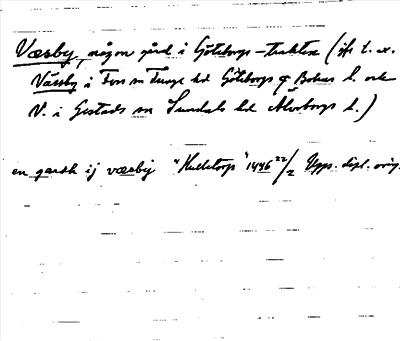 Væsby, någon gård i Göteborgs-trakten (jfr t. ex.
Väsby i Foss sn Tunge hd Göteborgs o Bohus l. och
V. i Gestads sn Sundals hd Älvsborgs l.)
en gardh ij væsby "Hulletorp" 1446 22/2 Upps. dipl. orig.